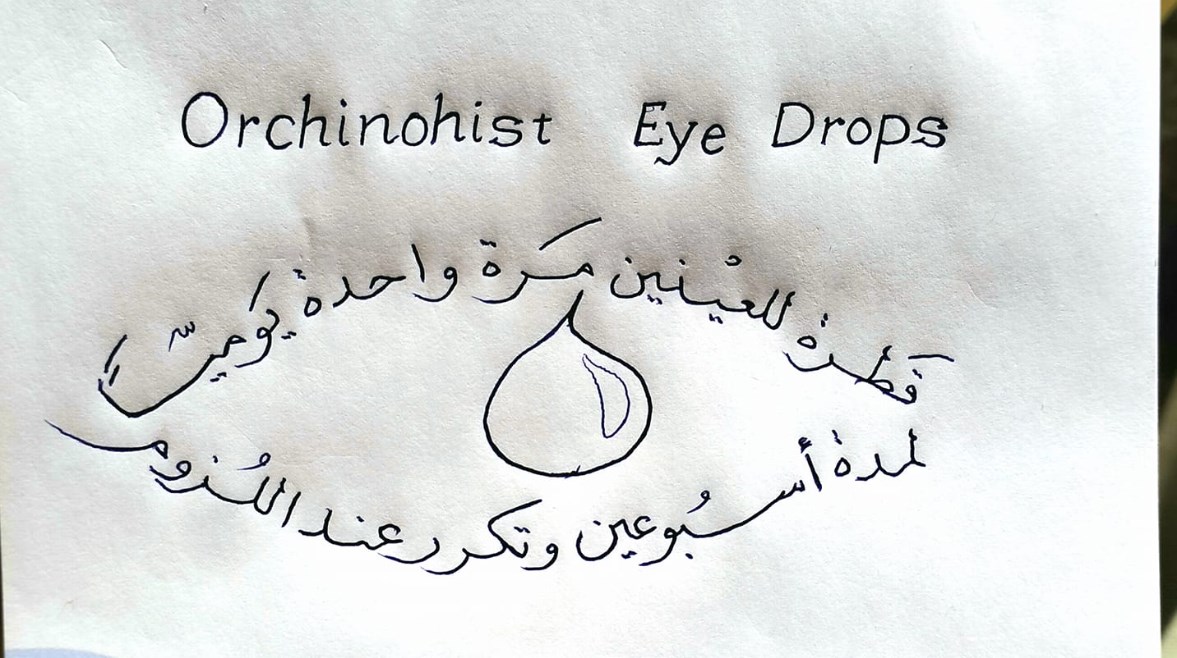 Orchinohist Eye Drops
قطرة للعيْنين مَرة واحدة يَوميّاً
لمدة أسبُوعين وتكرر عند اللُزوم